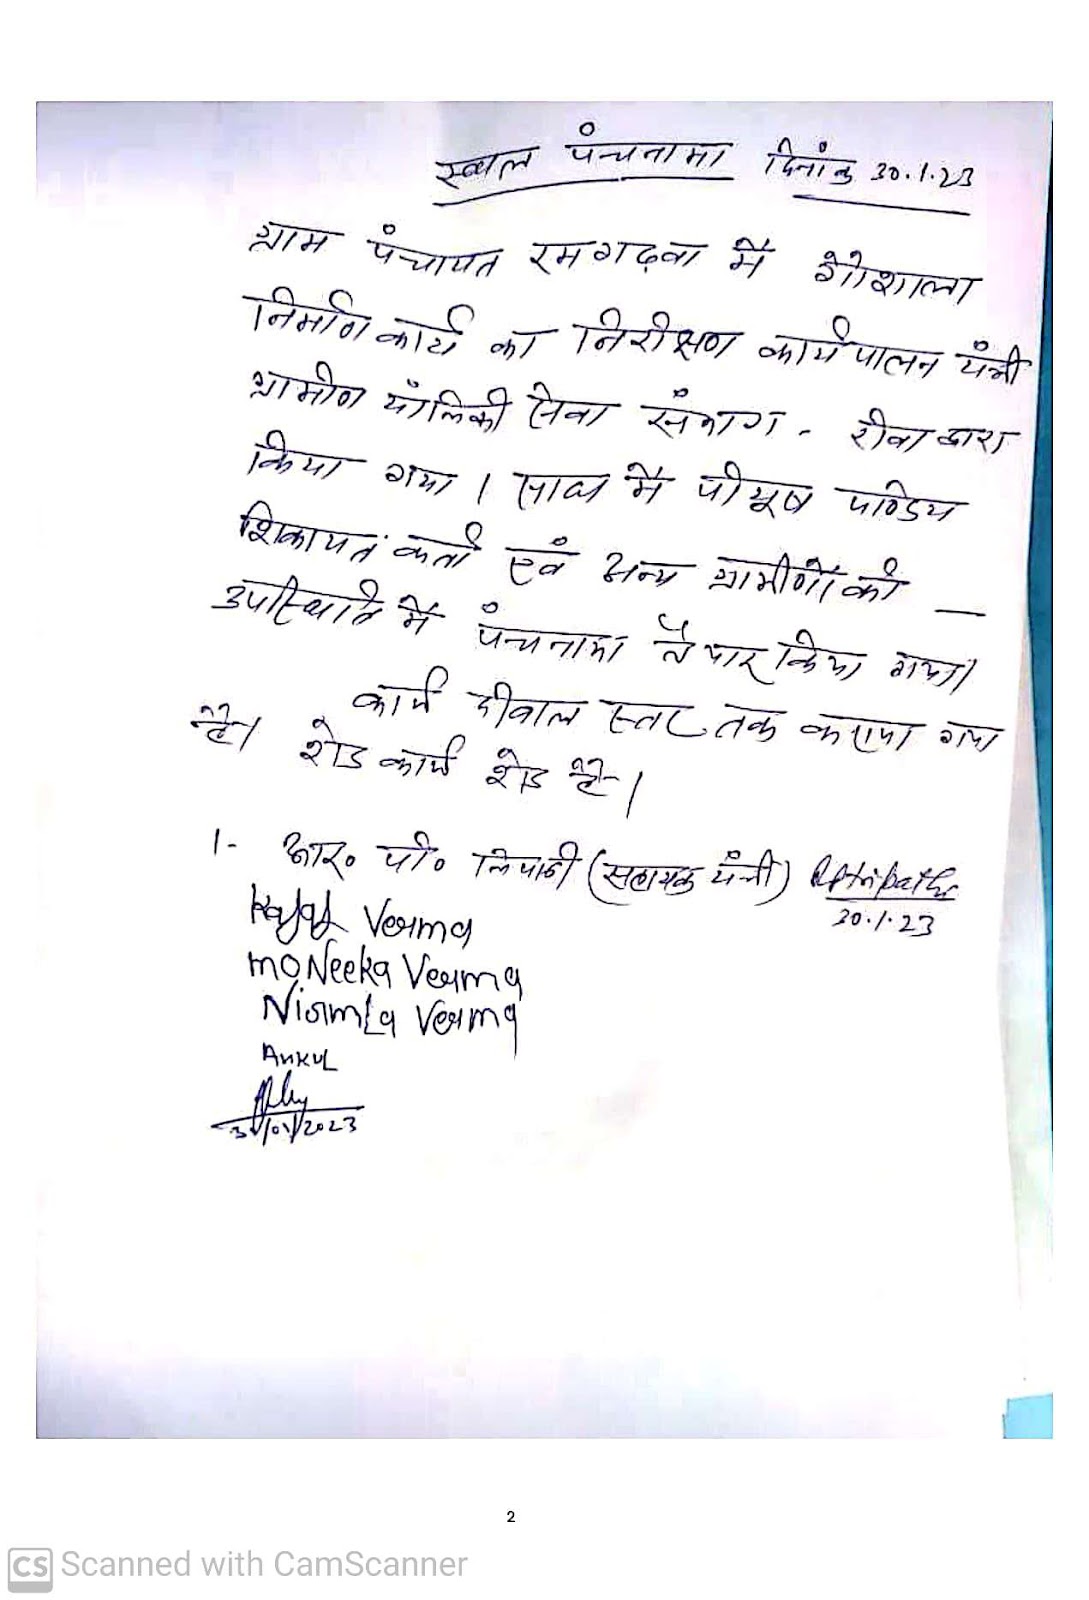 स्थल पंचनामा दिनांक 30.1.23
ग्राम पंचायत रमगढ़वा में गौशाला
निर्माण कार्य का निरीक्षण कार्यपालन यंत्री
ग्रामीण यांत्रिकी सेवा संभाग - रीवा द्वारा
किया गया। साथ में पीयूष पाण्डेय
शिकायत कर्ता एवं अन्य ग्रामीणों की
उपस्थिति में पंचनामा तैयार किया गया।
कार्य दीवाल स्तर तक कराया गया
है। शेड कार्य शेष है।
1- आर॰ पी॰ त्रिपाठी (सहायक यंत्री) Rptripathi
30.1.23
Kajal Verma
moNeeka Verma
Nirmla Verma
ANKUL
30/01/2023
2
CS Scanned with CamScanner